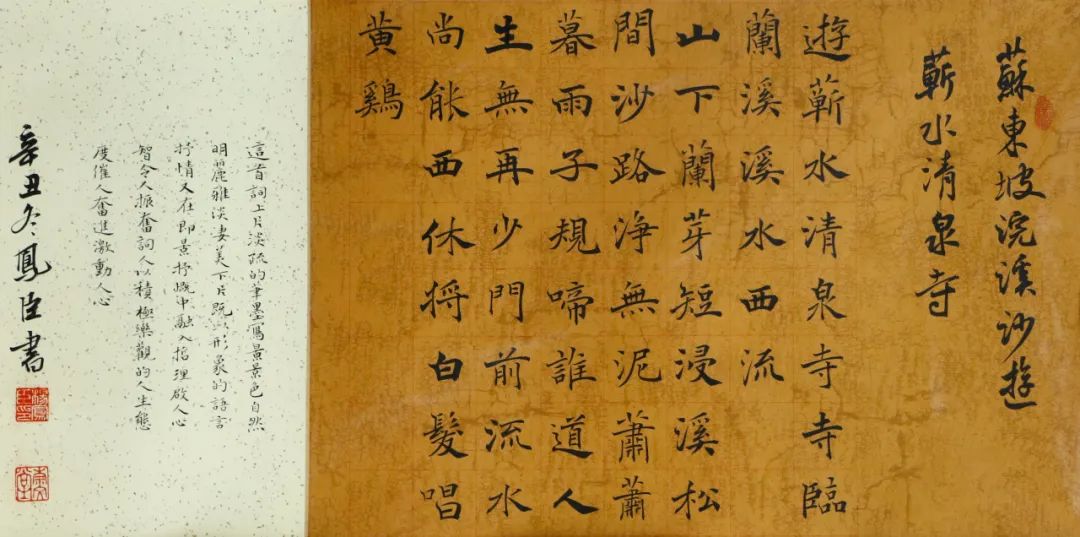 蘇東坡浣溪沙遊
蘄水清泉寺
遊蘄水清泉寺寺臨
蘭溪溪水西流
山下蘭芽短浸溪松
間沙路淨無泥蕭蕭
暮雨子規啼誰道人
生無再少門前流水
尚能西休將白髮唱
黄鷄
這首詞上片淡疏的筆墨寫景景色自然
明麗雅淡凄美下片既以形象的語言
抒情又在即景抒慨中融入哲理啟人心
智令人振奮詞人以積極樂觀的人生態
度催人奮進激動人心
辛丑冬鳳臣書